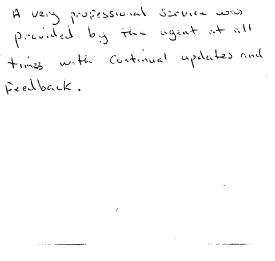 A very professional service was
provided by the agent at all
times with continual updates and
feedback.